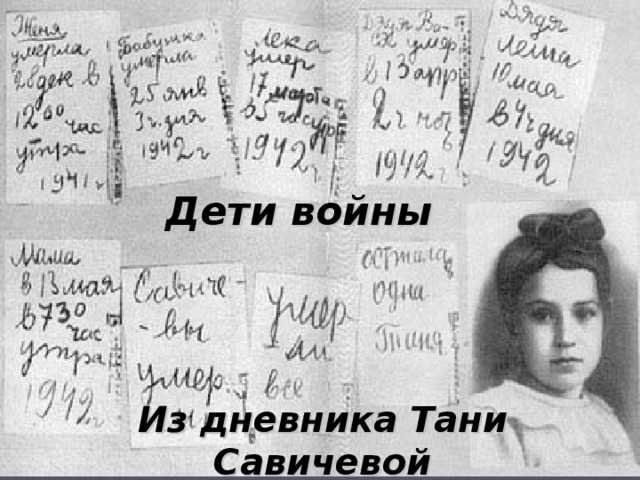 Женя
умерла
28 дек в
12 00
час
утра
1941 г
Бабушка
умерла
25 янв
3 ч. дня
1942 г
Лека
умер
17 марта
в 5 час утр
1942 г
Дядя Ва-
ся умер
в 13 апр
2 ч ноч
1942 г
Дядя
Леша
10 мая
в 4 ч дня
1942
Дети войны
Мама
в 13 мая
в 7 30
час
утра
1942 г
Савиче-
-вы
умер
умер
-ли
все
осталась
одна
Таня
Из дневника Тани
Савичевой